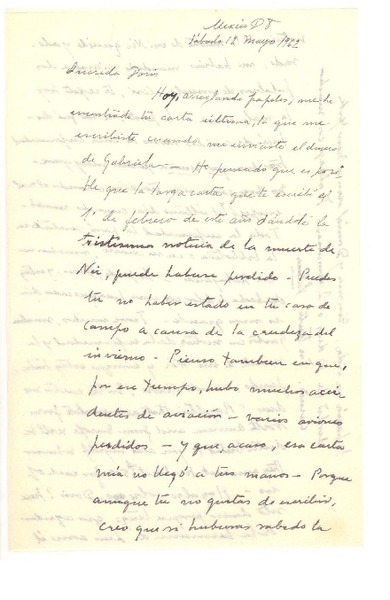 Mexico D F
Sábado 12 Mayo/1962
Querida Doris
Hoy, arreglando papeles, me he
encontrado tu carta última, la que me
escribiste cuando me enviaste el dinero
de Gabriela — He pensado que es posi
ble que la larga carta que te escribí el
1º de febrero de este año dándote la
tristísima noticia de la muerte de
, puede haberse perdido — Puedes
tú no haber estado en tu casa de
campo a causa de la crudeza del
invierno — Pienso tambien en que,
por ese tiempo, hubo muchos acci
dentes de aviación — varios aviones
perdidos — y que, acaso, esa carta
mía no llegó a tus manos — Porque
aunque tú no gustas de escribir,
creo que si hubieras sabido la